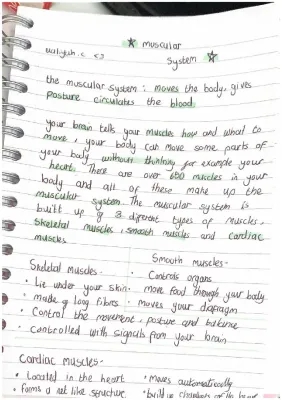 ☆ muscular
system ☆
the muscular system : moves the body, gives
posture circulates the blood.
your brain tells your muscles how and what to
move, your body can move some parts of
your body without thinking for example your
heart. There are over 650 muscles in your
body and all of these make up the
muscular system. The muscular system is
built up of 3 different types of muscles,
Skeletal muscles, smooth muscles and cardiac
muscles.
Skeletal muscles-
• Lie under your skin
• made of long fibres
• Control the movement, posture and balance
• Controlled with signals from your brain
Smooth muscles-
• Controls organs
• move food through your body
• moves your diaphragm
Cardiac muscles-
• Located in the heart
• forms a net like structure
• moves automatically
• build up chambers of the heart